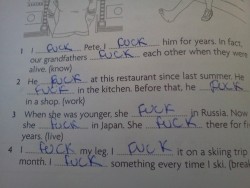 1 I FUCK Pete. I FUCK him for years. In fact,
our grandfathers FUCK each other when they were
alive. (know)
2 He FUCK at this restaurant since last summer. He
FUCK in the kitchen. Before that, he FUCK
in a shop. (work)
3 When she was younger, she FUCK in Russia. Now
she FUCK in Japan. She FUCK there for fi
years. (live)
4 I FUCK my leg. I FUCK it on a skiing trip
month. I FUCK something every time I ski. (brea